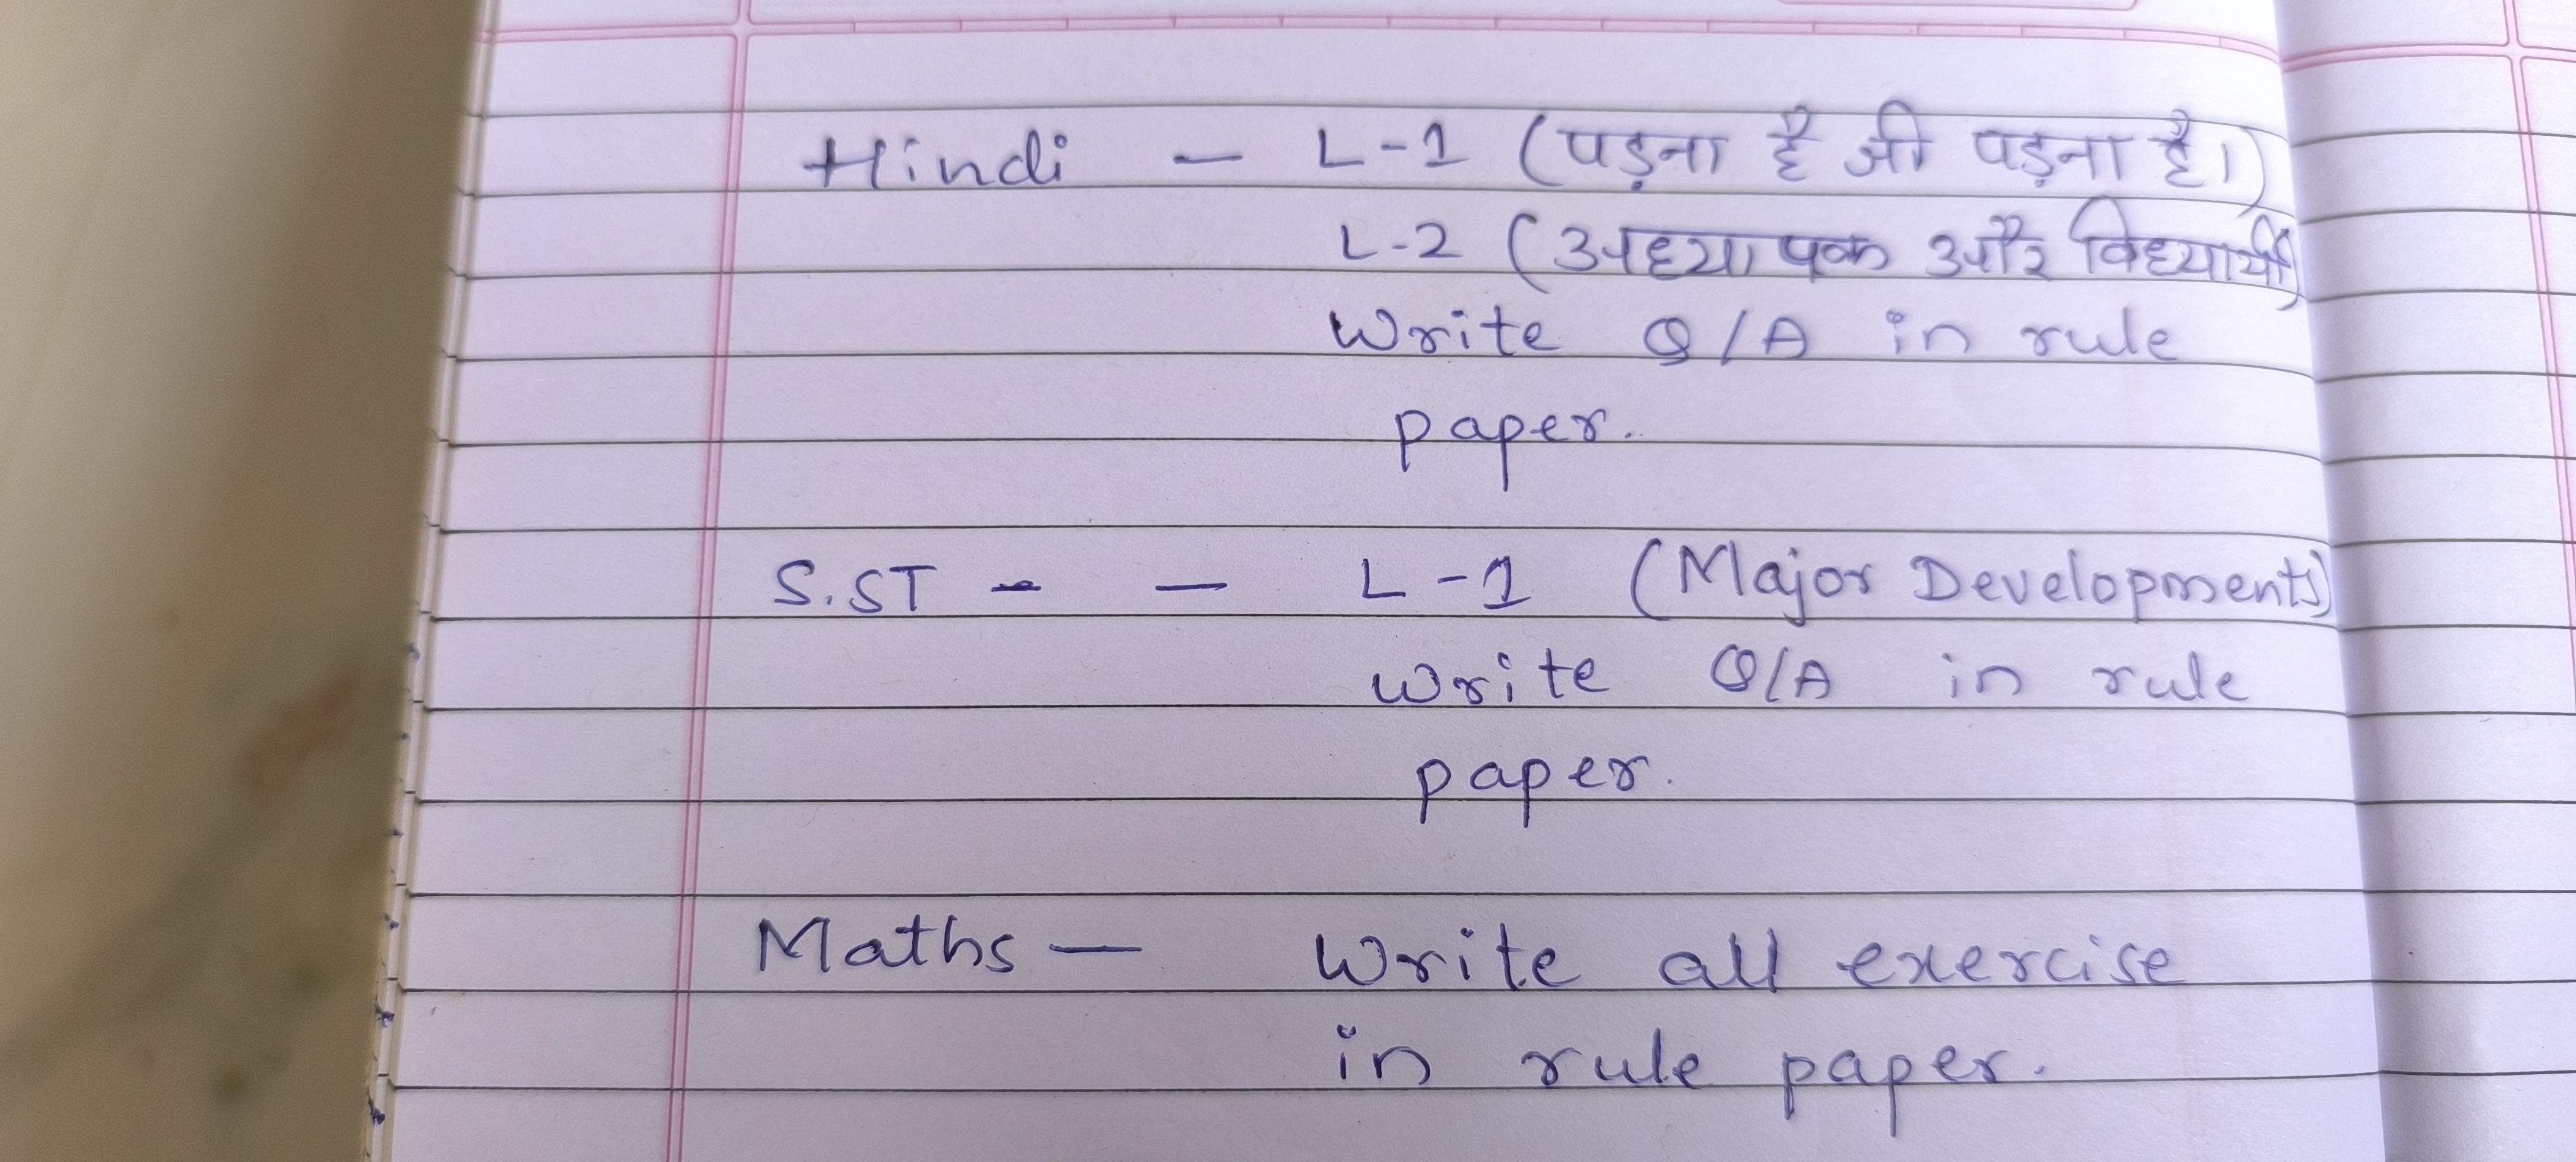 Hindi - L-1 (पड़ना है जी पड़ना है।)
L-2 (अध्यापक और विध्यार्थी)
Write Q/A in rule
paper.
S.ST - - L-1 (Major Developments)
write Q/A in rule
paper.
Maths - Write all exercise
in rule paper.